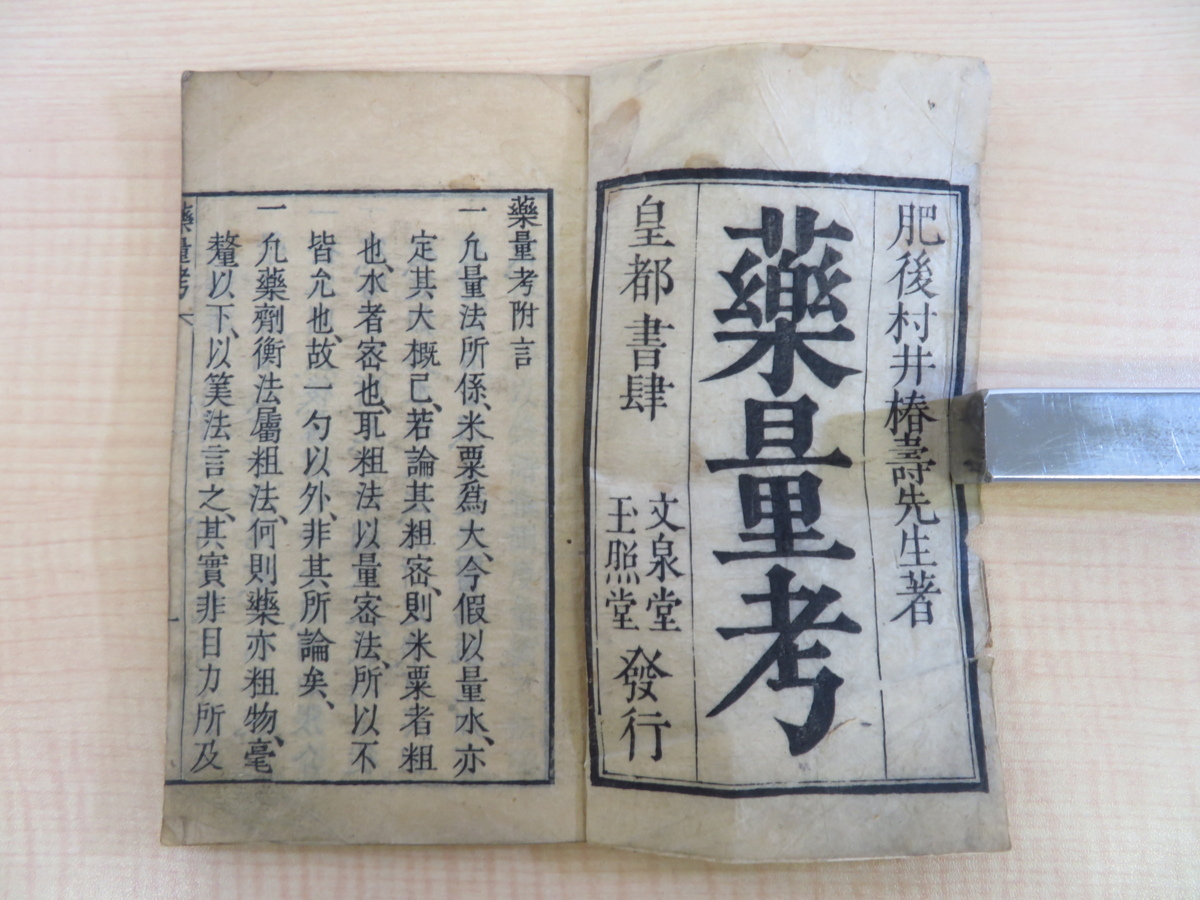 肥後村井椿壽先生著
藥量考
皇都書肆
文泉堂
玉照堂
發行
藥量考附言
一凢量法所係、米粟爲大、今假以量水、亦
定其大概已、若論其粗密、則米粟者粗
也、水者密也、耴粗法以量密法、所以不
皆允也、故一勺以外、非其所論矣、
一凢藥劑衡法屬粗法、何則藥亦粗物、毫
釐以下、以筭法言之、其實非目力所及
藥量考